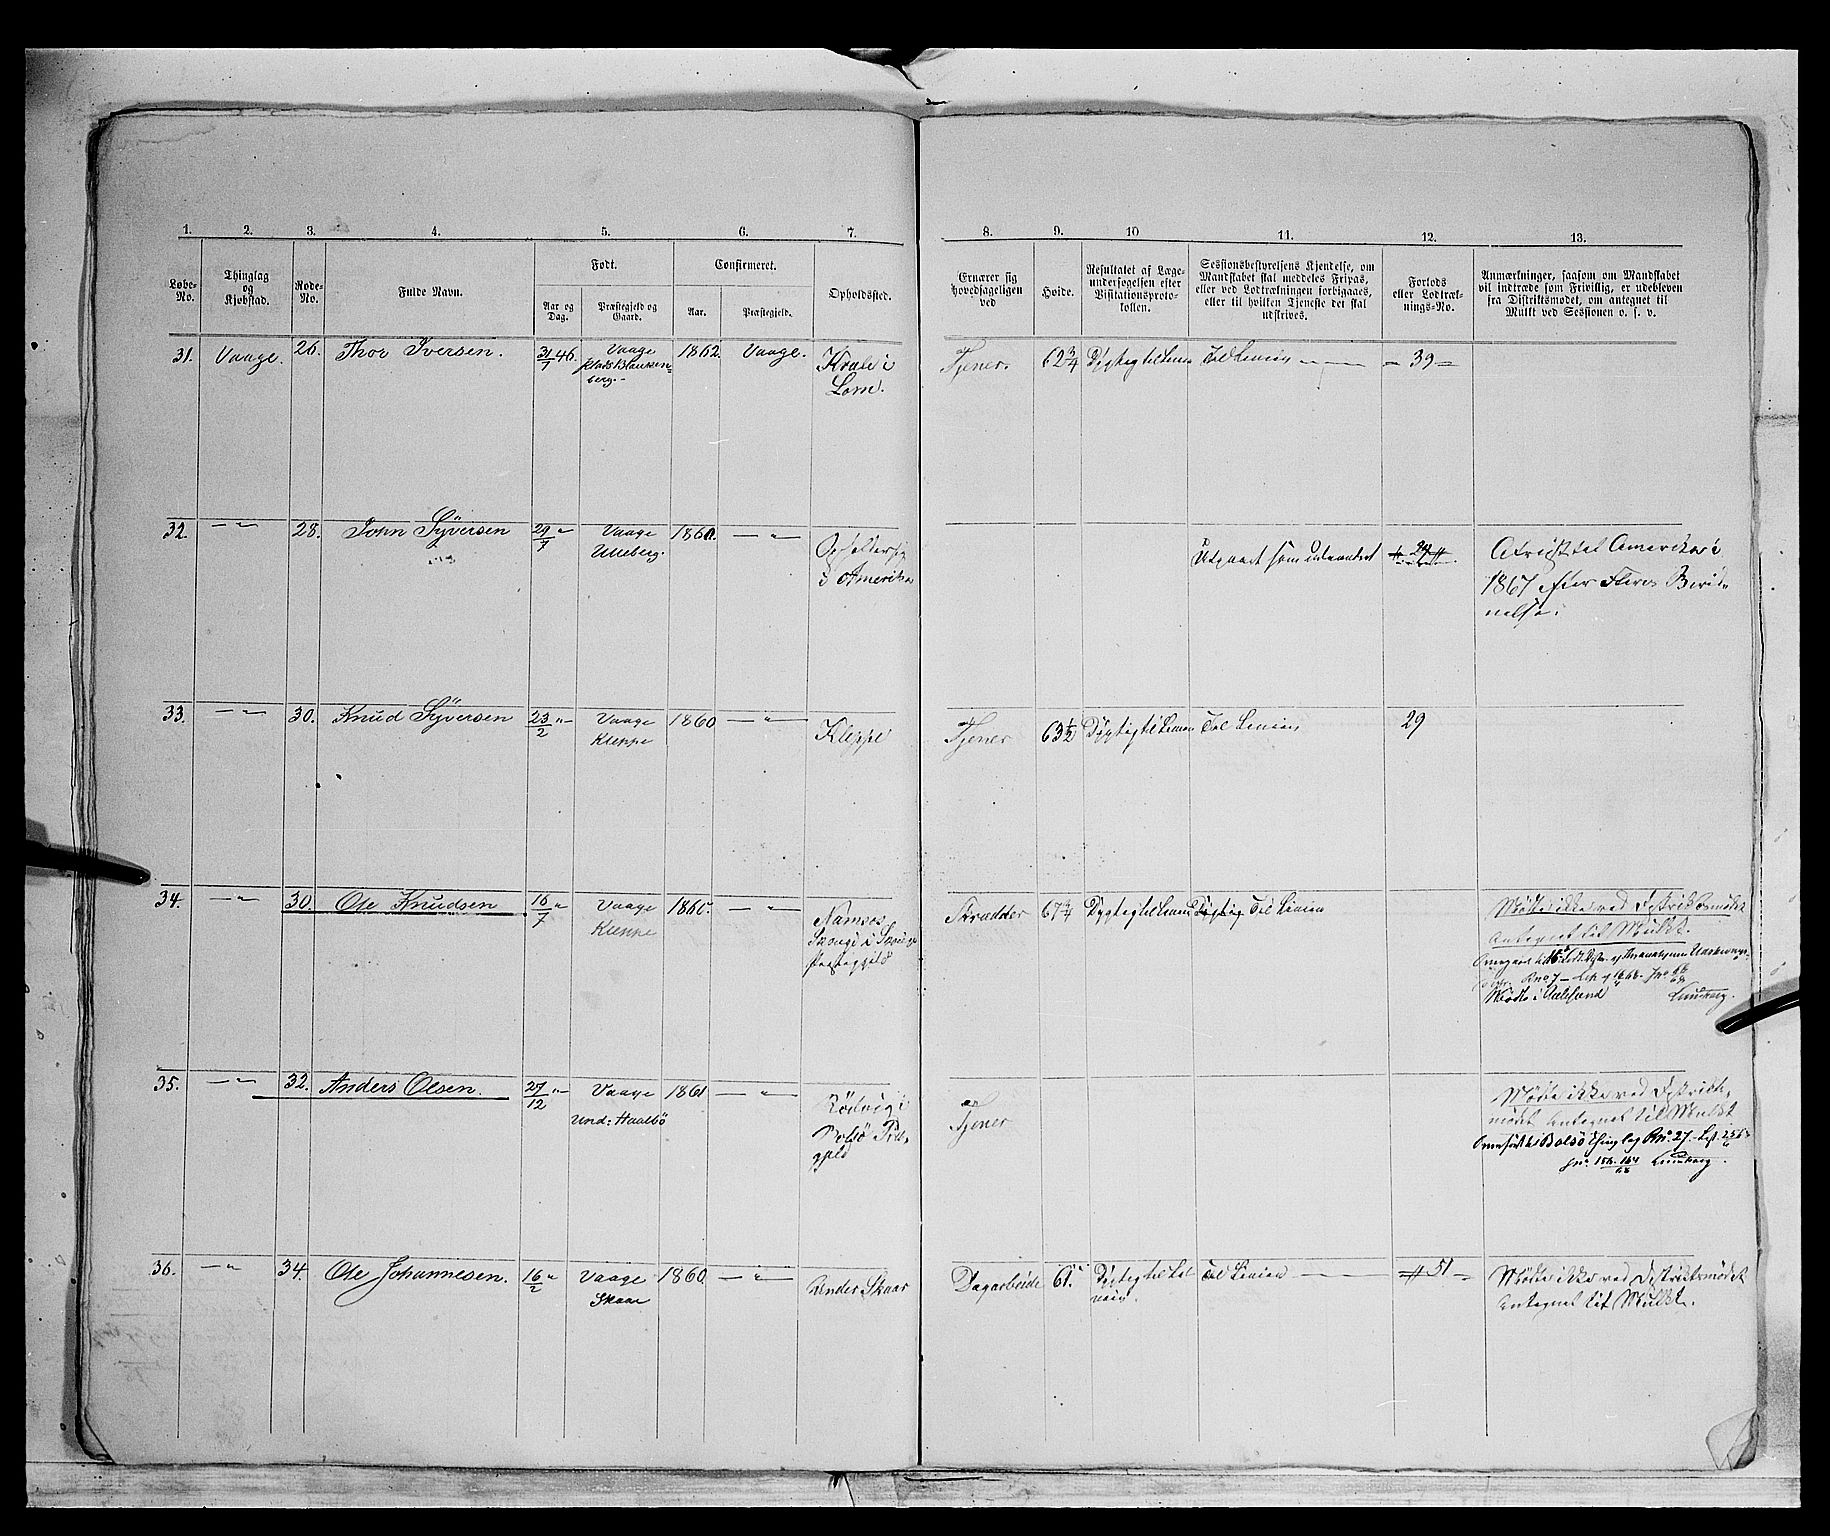 1. 2. 3. 4. 5. 6. 7. 8. 9. 10 11. 12. 13.
Løbe-No.
Thinglag og Kjøbstad.
Rode-No.
Fulde Navn.
Født.
Aar og Dag.
Præstegjeld og Gaard.
Confirmeret.
Aar.
Præstegjeld.
Opholdssted.
Ernærer sig hovedsageligen ved
Høide.
Resultatet af Læge-
undersøgelsen efter
Visitationsproto-
kollen.
Sessionsbestyrelsens Kjendelse, om
Mandskabet skal meddeles Fripas,
eller ved Lodtrækningen forbigaaes,
eller til hvilken Tjeneste det skal
udskrives.
Forlods
eller Lodtræk-
nings-No.
Anmærkninger, saasom om Mandskabet
vil indtræde som Frivillig, er udebleven
fra Distriktsmødet, om antegnet til
Mulkt ved Sessionen o. s. v.
31. Vaage. 26. Thor Iversen. 31/7 46. Vaage 1862. Vaage. Tjener. 62 3/4 Dygtig til Linien Til Linien — — 39 —
Blanken-
berg.
i
Lom.
32. — " 28. John Syversen 29/7 " Vaage 1860. — "
Ulleberg.
Opholder sig
i Amerika
Udgaaet som udvandret
Afreist til Amerika i
1867 efter Fleres Beret-
nelse.
33. — " — 30. Knud Syversen 23/2 " — Vaage 1860 — " — Kleppe Tjener 63 1/2 Dygtig til Linien Til Linien 29
Kleppe
34. — " — 30. Ole Knudsen 16/7 " Vaage 1860. — " — Skrædder 67 3/4 Dygtig til Linien Dygtig Til Linien
Kleppe
i
Præstegjeld
Mødte ikke ved Distriktsmødet
Antegnet til Mulkt.
Mødte i Aalesund
35. — " — 32. Anders Olsen. 27/12 " — Vaage 1861 — " —
Und: Haalbö
Rödvig i
Bolsø Præ-
gjeld
Tjener
Mødte ikke ved Distrikts-
mødet Antegnet til Mulkt
Overført til Bolsø Thinglag Rno. 27.
36. — " 34. Ole Johannesen. 16/2 " Vaage 1860. — " — Under Skaar Dagarbeide 61. Dygtig til Li- Til Linien — 51 —
Skaar
nien.
Mødte ikke ved Distriktsmødet
Antegnet til Mulkt.